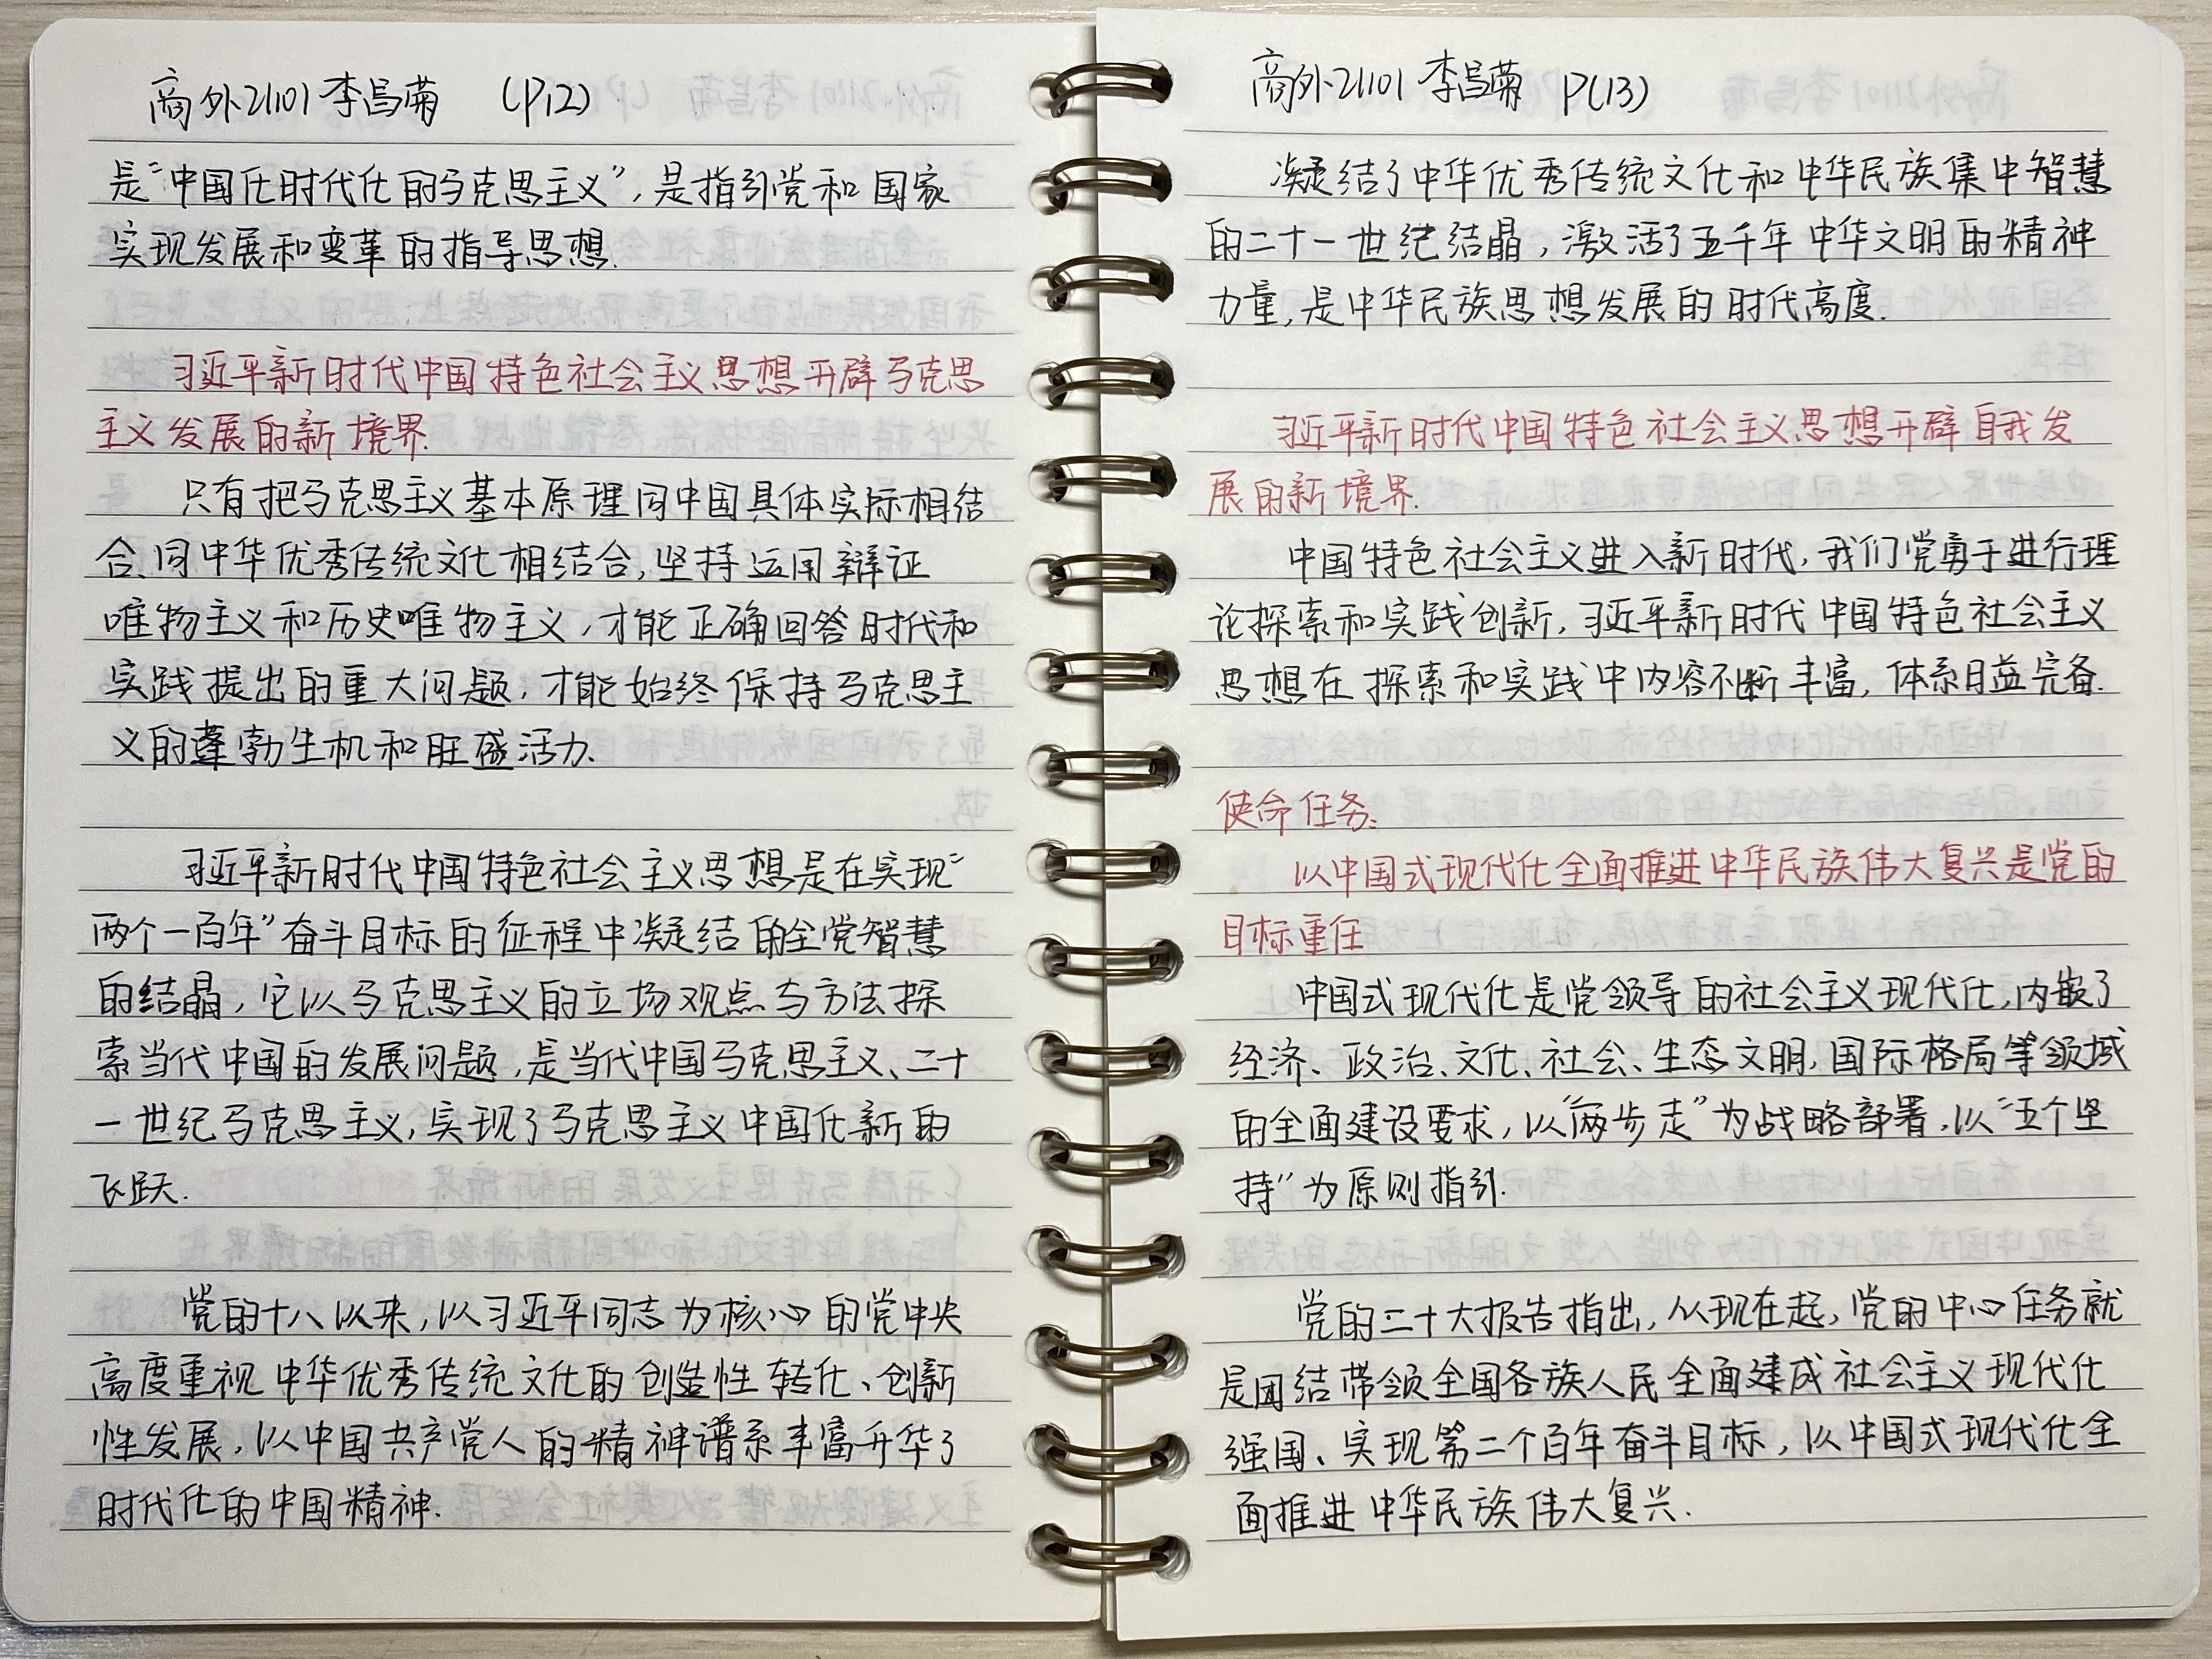 商外21101 李昌菊 (P12)
是“中国化时代化的马克思主义”，是指引党和国家
实现发展和变革的指导思想.
习近平新时代中国特色社会主义思想开辟马克思
主义发展的新境界.
只有把马克思主义基本原理同中国具体实际相结
合、同中华优秀传统文化相结合，坚持运用辩证
唯物主义和历史唯物主义，才能正确回答时代和
实践提出的重大问题，才能始终保持马克思主
义的蓬勃生机和旺盛活力.
习近平新时代中国特色社会主义思想是在实现“
两个一百年”奋斗目标的征程中凝结的全党智慧
的结晶，它以马克思主义的立场观点与方法探
索当代中国的发展问题，是当代中国马克思主义、二十
一世纪马克思主义，实现了马克思主义中国化新的
飞跃.
党的十八以来，以习近平同志为核心的党中央
高度重视中华优秀传统文化的创造性转化、创新
性发展，以中国共产党人的精神谱系丰富升华了
时代化的中国精神.
商外21101 李昌菊 P(13)
凝结了中华优秀传统文化和中华民族集中智慧
的二十一世纪结晶，激活了五千年中华文明的精神
力量，是中华民族思想发展的时代高度.
习近平新时代中国特色社会主义思想开辟自我发
展的新境界.
中国特色社会主义进入新时代，我们党勇于进行理
论探索和实践创新，习近平新时代中国特色社会主义
思想在探索和实践中内容不断丰富，体系日益完备.
使命任务：
以中国式现代化全面推进中华民族伟大复兴是党的
目标重任
中国式现代化是党领导的社会主义现代化，内嵌了
经济、政治、文化、社会、生态文明，国际格局等领域
的全面建设要求，以“两步走”为战略部署，以“五个坚
持”为原则指引.
党的二十大报告指出，从现在起，党的中心任务就
是团结带领全国各族人民全面建成社会主义现代化
强国、实现第二个百年奋斗目标，以中国式现代化全
面推进中华民族伟大复兴.